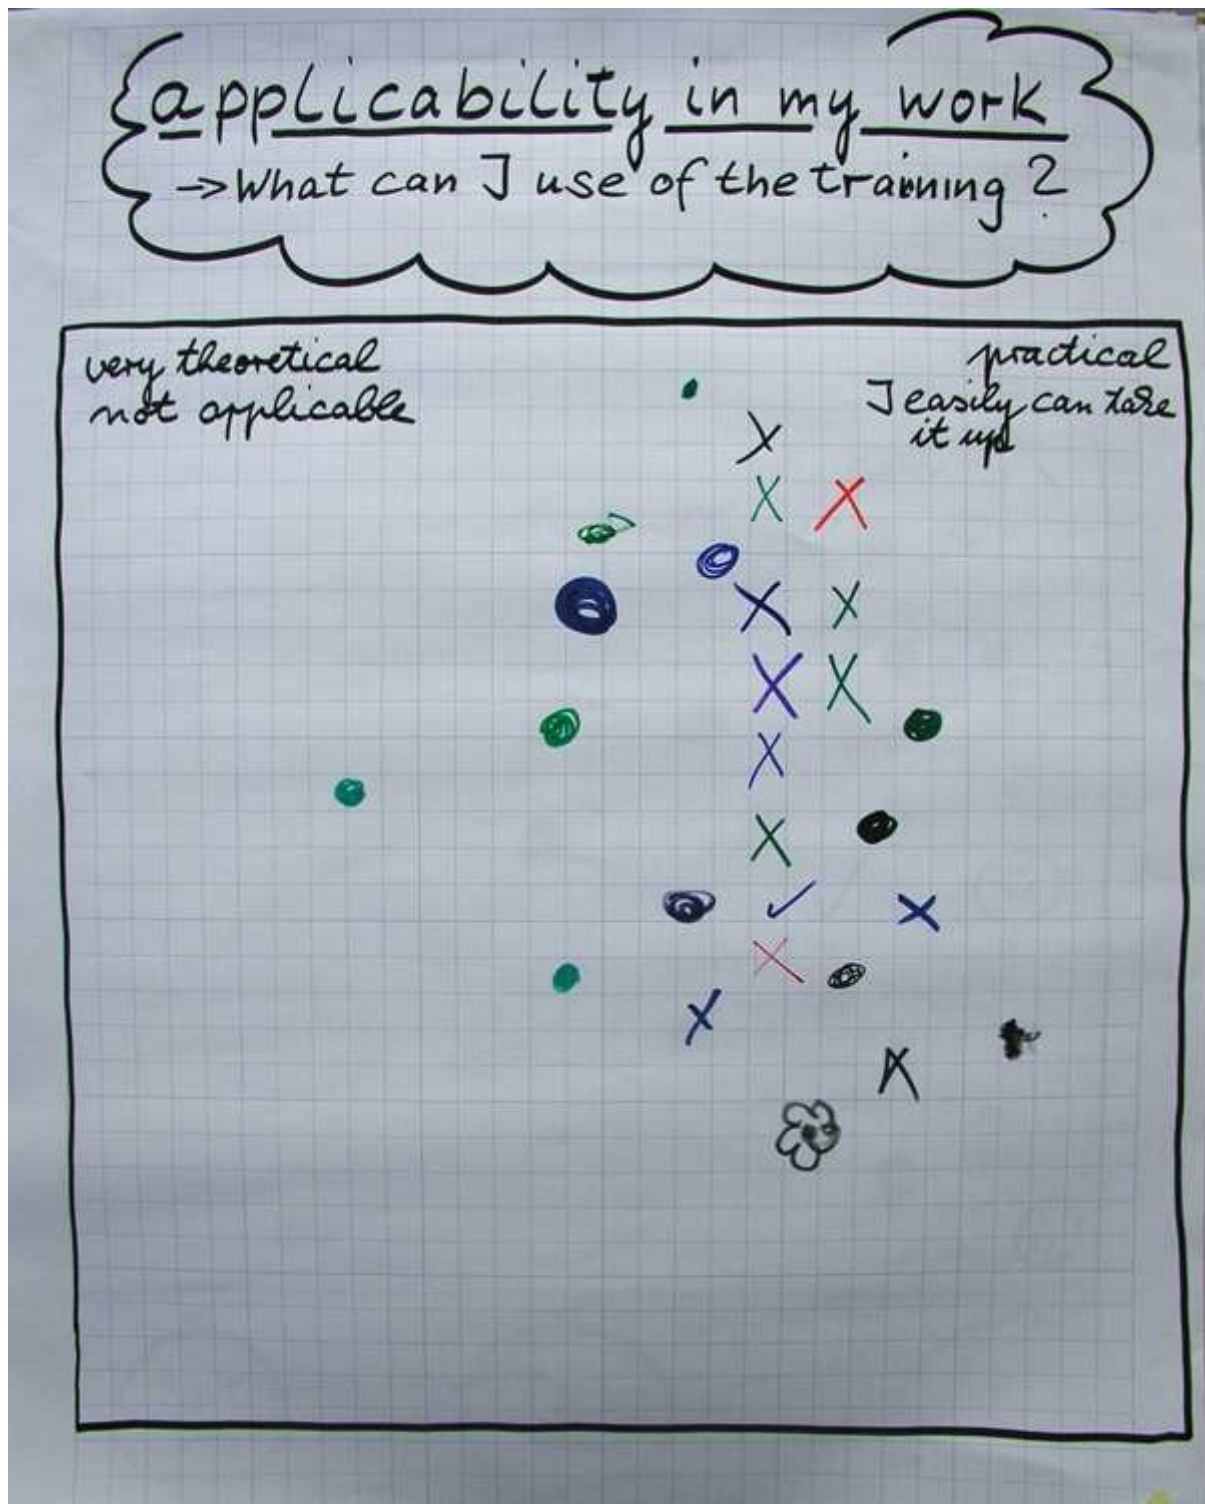 applicability in my work
→ What can I use of the training ?
very theoretical
not applicable
practical
I easily can take
it up